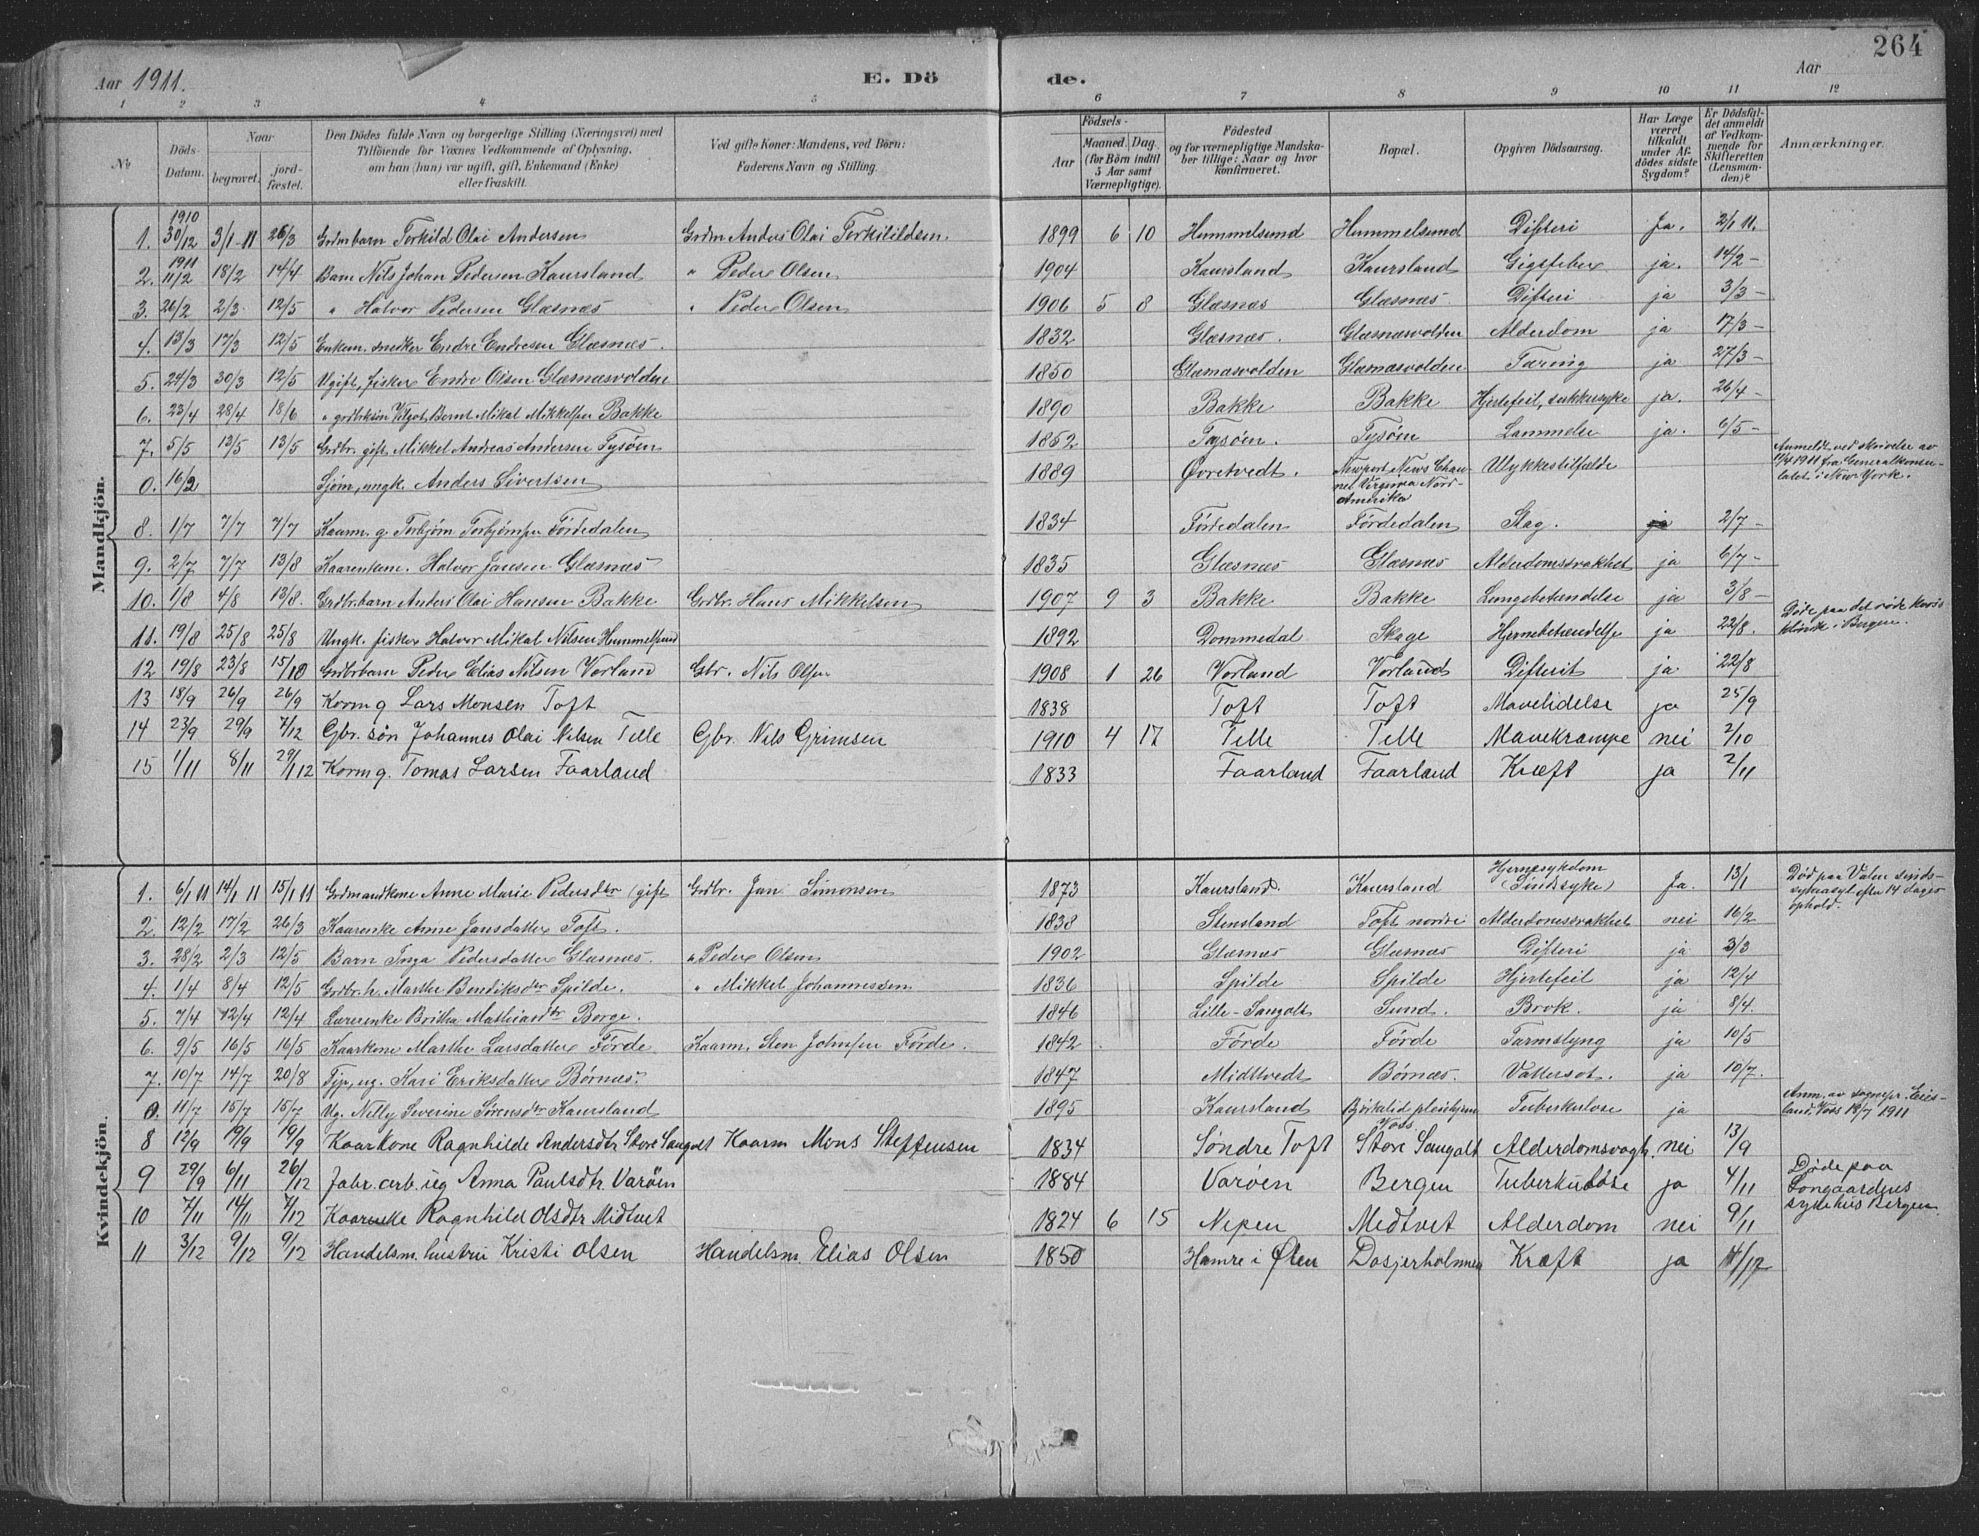 264
Aar 1911.
E. Dö
de.
Aar
1 2 3 4 5 6 7 8 9 10 11 12
No
Döds-Datum.
Naar begravet. jord-fæstet.
Den Dödes fulde Navn og borgerlige Stilling (Næringsvei) med Tilföiende for Voxnes Vedkommende af Oplysning, om han (hun) var ugift, gift, Enkemand (Enke) eller fraskilt.
Ved gifte Koner: Mandens, ved Börn: Faderens Navn og Stilling.
Födsels-
Aar Maaned. Dag. (for Börn indtil 5 Aar samt Værnepligtige).
Födested og for værnepligtige Mandskaber tillige: Naar og hvor konfirmeret.
Bopæl.
Opgiven Dödsaarsag.
Har Læge været tilkaldt under Afdödes sidste Sygdom?
Er Dödsfaldet anmeldt af Vedkommende for Skifteretten (Lensmanden)?
Anmærkninger.
Mandkjön.
1. 1910 30/12 3/1-11 26/3 Grdmbarn Torkild Olai Andersen Grdm Anders Olai Torkilildsen. 1899 6 10 Hummelsund Hummelsund Difteri Ja. 2/1 11.
2. 1911 11/2 18/2 14/4 Barn Nils Johan Pedersen Kaursland " Peder Olsen 1904 Kaursland Kaursland Gigtfeber ja. 14/2 -
3. 26/2 2/3 12/5 " Halvor Pedersen Glæsnæs " Peder Olsen 1906 5 8 Glæsnæs Glæsnæs Difteri ja 3/3 -
4. 13/3 17/3 12/5 Enkem. snedker Endre Endresen Glæsnæs. 1832 Glæsnæs. Glæsnæsvolden Alderdom ja 17/3 -
5. 24/3 30/3 12/5 Ugift, fisker Endre Olsen Glæsnæsvolden 1850 Glæsnæsvolden Glæsnæsvolden Tæring ja 27/3 -
6. 23/4 28/4 18/6 " grdbrksön Bernt Mikal Mikkelsen Bakke 1890 Bakke Bakke Hjertefeil, sukkersyke ja. 26/4 -
7. 5/5 13/5 13/5 Grdbr. gift Mikkel Andreas Andersen Tysöen 1852 Tysöen. Tysöen Lammelse ja. 6/5 -
0. 16/2 Sjöm, ungk. Anders Sivertsen 1889 Övretvedt. Newport News Channel Virginia Nord-Amerika Ulykkestilfælde Anmeldt ved skrivelse av 11/4 1911 fra Generalkonsulatet i New York.
8. 1/7 7/7 7/7 Kaarm. g. Torbjörn Torbjörnsen Fördedalen 1834 Fördedalen Fördedalen Slag. ja 2/7 -
9. 2/7 7/7 13/8 Kaarenkem. Halvor Jansen Glæsnæs 1835 Glæsnæs Glæsnæs Alderdomssvakhet ja 6/7 -
10. 1/8 4/8 13/8. Grdbr.barn Anders Olai Hansen Bakke Grdbr. Hans Mikkelsen 1907 9 3 Bakke Bakke Lungebetændelse ja 3/8 -
11. 19/8 25/8 25/8 Ungk. fisker Halvor Mikal Nilsen Hummelsund 1892 Dommedal Skage Hjernebetændelse ja 22/8. Döde paa det röde kors klinik i Bergen.
12 19/8 23/8 15/10 Grdbrbarn Peder Elias Nilsen Vorland Gbr. Nils Olsen 1908 1 26 Vorland Vorland Difterit ja 22/8
13 18/9 26/9 26/9 Korm g Lars Monsen Toft 1838 Toft Toft Mavelidelse ja 25/9
14 23/9 29/9 7/12 Gbr. sön Johannes Olai Nilsen Telle Gbr. Nils Grimsen 1910 4 17 Telle Telle Mavekrampe nei 2/10
15 1/11 8/11 29/1 12 Korm g. Tomas Larsen Faarland 1833 Faarland Faarland Kræft ja 2/11
Kvindekjön.
1. 6/1 11 14/1 11 15/1 11 Grdmandkone Anne Marie Pedersdtr (gift Grdbr. Jan Simonsen 1873 Kaursland. Kaursland Hjernesykdom (Sindssyke) Ja. 13/1 Död paa Valen sinds-sykeasyl efter 14 dages ophold.
2. 12/2 17/2 26/3 Kaarenke Anne Jansdatter Toft. 1838 Stensland Toft nordre Alderdomssvakhet nei 16/2
3. 28/2 2/3 12/5 Barn Inga Pedersdatter Glæsnæs. " Peder Olsen 1902 Glæsnæs Glæsnæs Difteri ja 3/3
4. 1/4 8/4 12/5 Grdbr.h. Marthe Bendiksdtr Spilde. " Mikkel Johannessen 1836 Spilde Spilde Hjertefeil ja 12/4
5. 7/4 12/4 12/4 Lærerenke Britha Mathiasdtr Borge. 1846 Lille-Sangolt Sund. Brok. ja 8/4.
6. 9/5 16/5 16/5 Kaarkone Marthe Larsdatter Förde Kaarm. Sten Johnsen Förde. 1842 Förde Förde Tarmslyng ja 10/5
7. 10/7 14/7 20/8 Tjp, ug. Kari Eriksdatter Börnæs. 1847 Midttvedt Börnæs. Vattersot. ja 10/7.
0. 11/7 15/7 15/7 Ug. Nelly Severine Sörensdtr Kaursland 1895 Kaursland Björkelid pleiehjem Voss Tuberkulose ja Anm. av sognepr. Voss 18/7 1911
8 12/9 19/9 19/9 Kaarkone Ragnhilde Andersdtr Store Sangolt Kaarm Mons Steffensen 1834 Söndre Toft Store Sangolt Alderdomsvagh. nei 13/9
9 29/9 6/11 26/12 Fabr. arb. ug Anna Paulsdtr. Varöen 1884 Varöen Bergen Tuberkulose ja 4/11 Döde paa Longaardens sykehus Bergen.
10 7/11 14/11 7/12 Kaarenke Ragnhild Olsdtr Midtvet 1824 6 15 Nepen Midtvet Alderdom nei 9/11
11 3/12 9/12 9/12 Handelsm. hustru Kristi Olsen Handelsm. Elias Olsen 1850 Hamre i Östen Dosjerholmen Kræft ja 4/12